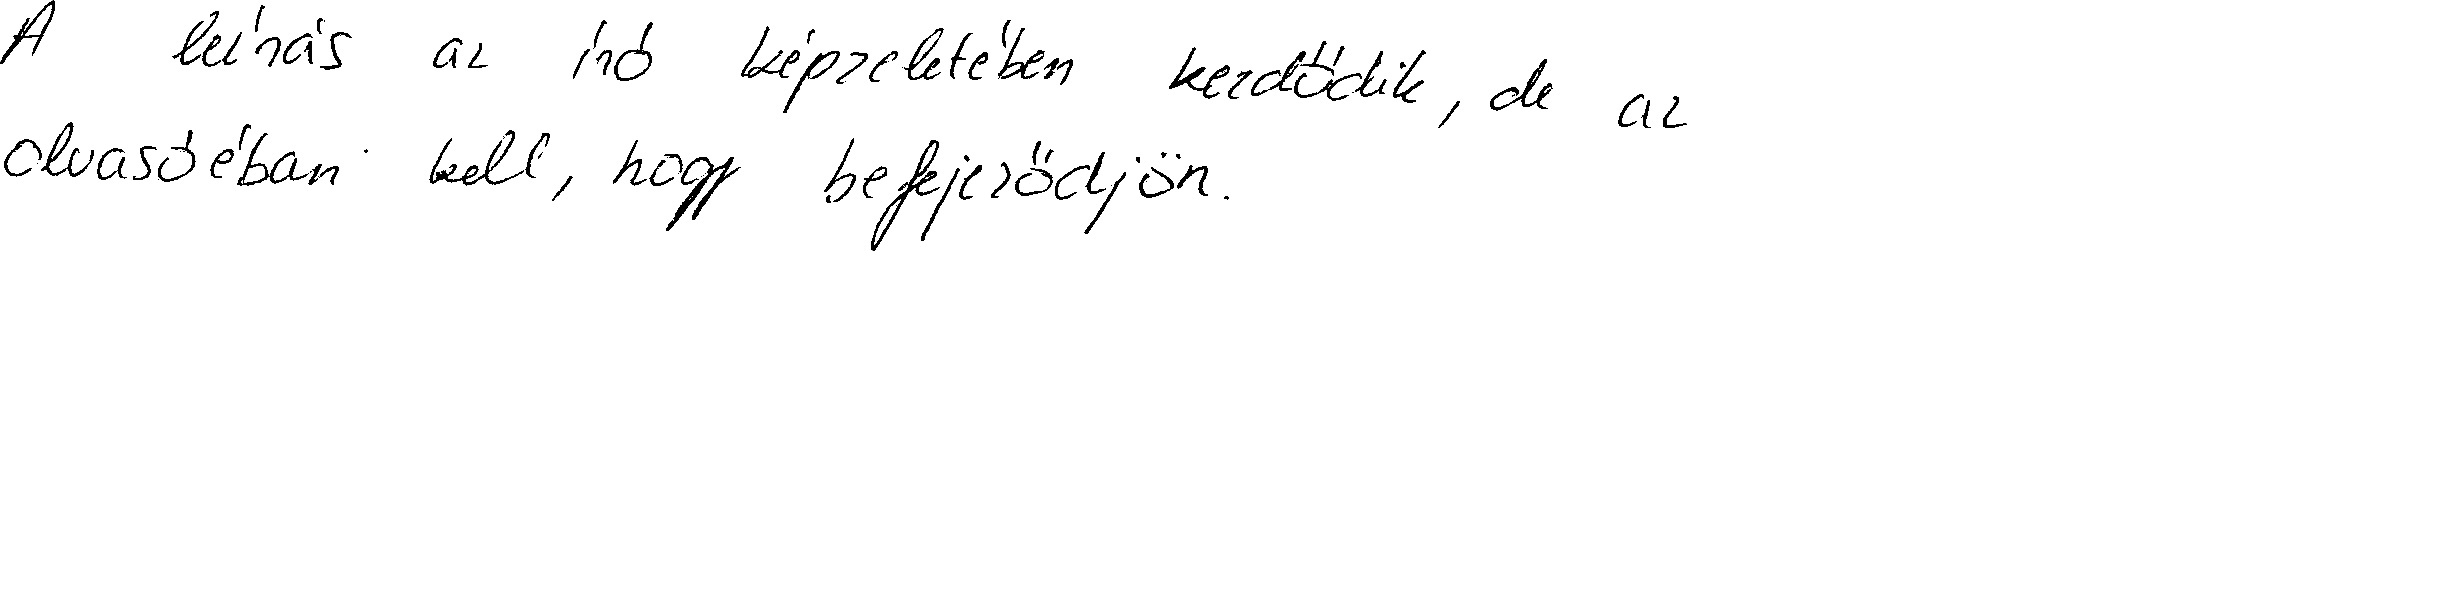 A leírás az író képzeletében kezdődik, de az
olvasóéban kell, hogy befejeződjön.